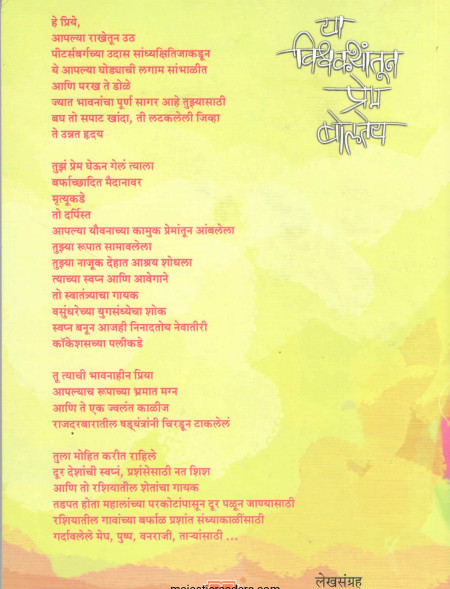 या
विश्वकथांतून
प्रेम
बोलतेय
हे प्रिये,
आपल्या राखेतून उठ
पीटर्सबर्गच्या उदास सांध्यक्षितिजाकडून
ये आपल्या घोड्याची लगाम सांभाळीत
आणि परख ते डोळे
ज्यात भावनांचा पूर्ण सागर आहे तुझ्यासाठी
बघ तो सपाट खांदा, ती लटकलेली जिव्हा
ते उन्नत हृदय
तुझं प्रेम घेऊन गेलं त्याला
बर्फाच्छादित मैदानावर
मृत्यूकडे
तो दर्पिस्त
आपल्या यौवनाच्या कामुक प्रेमांतून आंबलेला
तुझ्या रूपात सामावलेला
तुझ्या नाजूक देहात आश्रय शोधला
त्याच्या स्वप्न आणि आवेगाने
तो स्वातंत्र्याचा गायक
वसुंधरेच्या युगसंध्येचा शोक
स्वप्न बनून आजही निनादतोय नेवातीरी
कॉकेशसच्या पलीकडे
तू त्याची भावनाहीन प्रिया
आपल्याच रूपाच्या भ्रमात मग्न
आणि ते एक ज्वलंत काळीज
राजदरबारातील षड्यंत्रांनी चिरडून टाकलेलं
तुला मोहित करीत राहिले
दूर देशांची स्वप्नं, प्रशंसेसाठी नत शिश
आणि तो रशियातील शेतांचा गायक
तडपत होता महालांच्या परकोटांपासून दूर पळून जाण्यासाठी
रशियातील गावांच्या बर्फाळ प्रशांत संध्याकाळींसाठी
गर्दावलेले मेघ, पुष्प, वनराजी, ताऱ्यांसाठी ...
लेखसंग्रह
majesticreaders.com